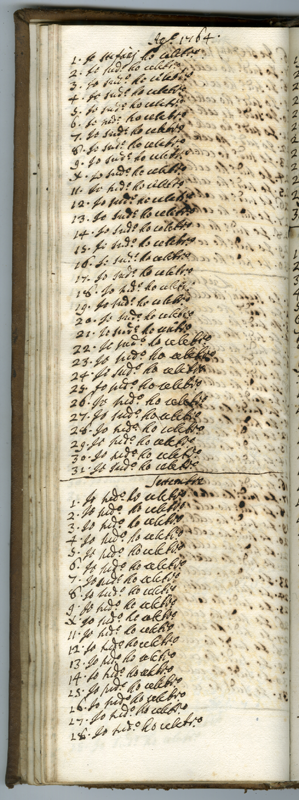 Ag.º 1764.
1. Io ho celebr.º
2. Io sud.º ho celebr.º
3. Io sud.º ho celebr.º
4. Io sud.º ho celebr.º
5. Io sud.º ho celebr.º
6. Io sud.º ho celebr.º
7. Io sud.º ho celebr.º
8. Io sud.º ho celebr.º
9. Io sud.º ho celebr.º
Io sud.º ho celebr.º
11. Io sud.º ho celebr.º
12. Io sud.º ho celebr.º
13. Io sud.º ho celebr.º
14. Io sud.º ho celebr.º
15. Io sud.º ho celebr.º
16. Io sud.º ho celebr.º
17. Io sud.º ho celebr.º
18. Io sud.º ho celebr.º
19. Io sud.º ho celebr.º
20. Io sud.º ho celebr.º
21. Io sud.º ho celebr.º
22. Io sud.º ho celebr.º
23. Io sud.º ho celebr.º
24. Io sud.º ho celebr.º
25. Io sud.º ho celebr.º
26. Io sud.º ho celebr.º
27. Io sud.º ho celebr.º
28. Io sud.º ho celebr.º
29. Io sud.º ho celebr.º
30. Io sud.º ho celebr.º
31. Io sud.º ho celebr.º
Settembre
1. Io sud.º ho celebr.º
2. Io sud.º ho celebr.º
3. Io sud.º ho celebr.º
4. Io sud.º ho celebr.º
5. Io sud.º ho celebr.º
6. Io sud.º ho celebr.º
7. Io sud.º ho celebr.º
8. Io sud.º ho celebr.º
9. Io sud.º ho celebr.º
Io sud.º ho celebr.º
11. Io sud.º ho celebr.º
12. Io sud.º ho celebr.º
13. Io sud.º ho celebr.º
14. Io sud.º ho celebr.º
15. Io sud.º ho celebr.º
16. Io sud.º ho celebr.º
17. Io sud.º ho celebr.º
18. Io sud.º ho celebr.º